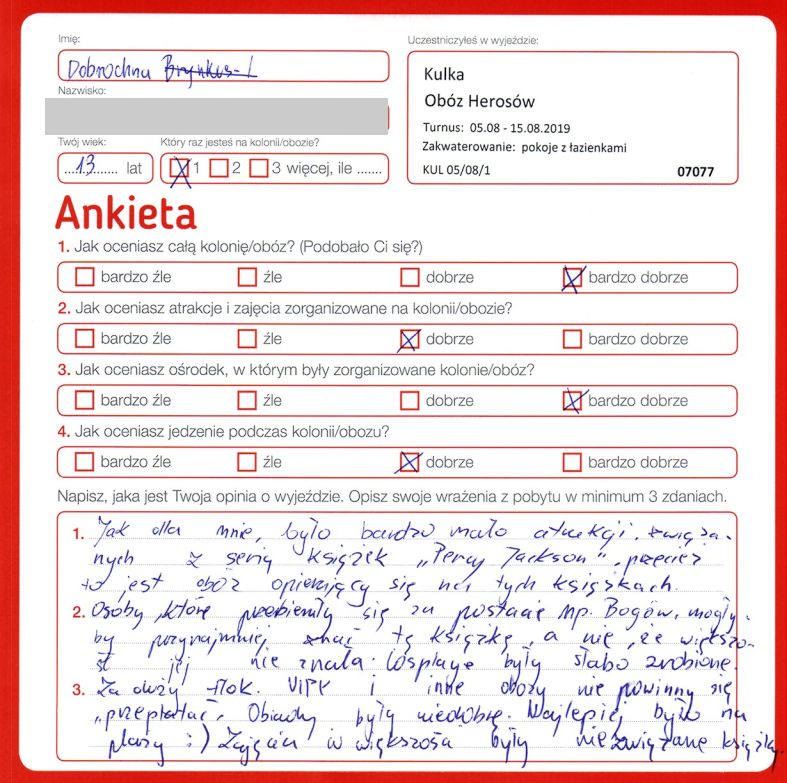 Imię:
Dobrochna
Nazwisko:
Twój wiek:
13 lat
Który raz jesteś na kolonii/obozie?
1 2 3 więcej, ile .......
Uczestniczyłeś w wyjeździe:
Kulka
Obóz Herosów
Turnus: 05.08 - 15.08.2019
Zakwaterowanie: pokoje z łazienkami
KUL 05/08/1 07077
Ankieta
1. Jak oceniasz całą kolonię/obóz? (Podobało Ci się?)
bardzo źle źle dobrze bardzo dobrze
2. Jak oceniasz atrakcje i zajęcia zorganizowane na kolonii/obozie?
bardzo źle źle dobrze bardzo dobrze
3. Jak oceniasz ośrodek, w którym były zorganizowane kolonie/obóz?
bardzo źle źle dobrze bardzo dobrze
4. Jak oceniasz jedzenie podczas kolonii/obozu?
bardzo źle źle dobrze bardzo dobrze
Napisz, jaka jest Twoja opinia o wyjeździe. Opisz swoje wrażenia z pobytu w minimum 3 zdaniach.
1. Jak dla mnie, było bardzo mało atrakcji, związa-
nych z serią książek „Percy Jackson", przecież
to jest obóz opierający się na tych książkach.
2. Osoby, które przebierały się za postacie np. Bogów, mogły-
by przynajmniej znać tę książkę, a nie, że większo-
ść jej nie znała. Cosplaye były słabo zrobione.
3. Za duży tłok. VIPY i inne obozy nie powinny się
„przeplatać". Obiady były niedobre. Najlepiej było na
plaży :) Zajęcia w większości były niezwiązane